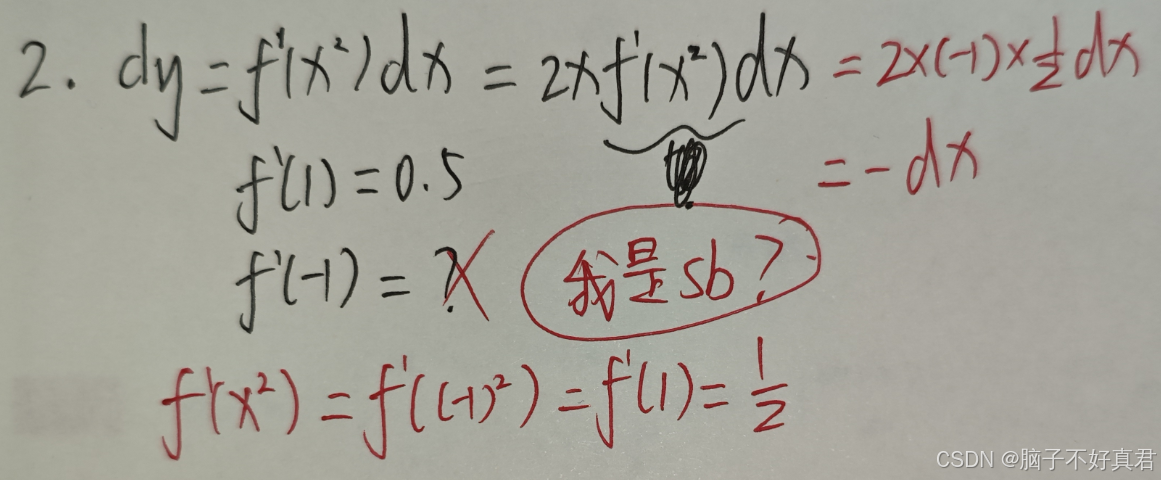 2. dy = f'(x²)dx = 2xf'(x²)dx = 2×(-1)×½dx
= -dx
f'(1) = 0.5
f'(-1) = ?
我是sb?
f'(x²) = f'((-1)²) = f'(1) = ½
CSDN @脑子不好真君